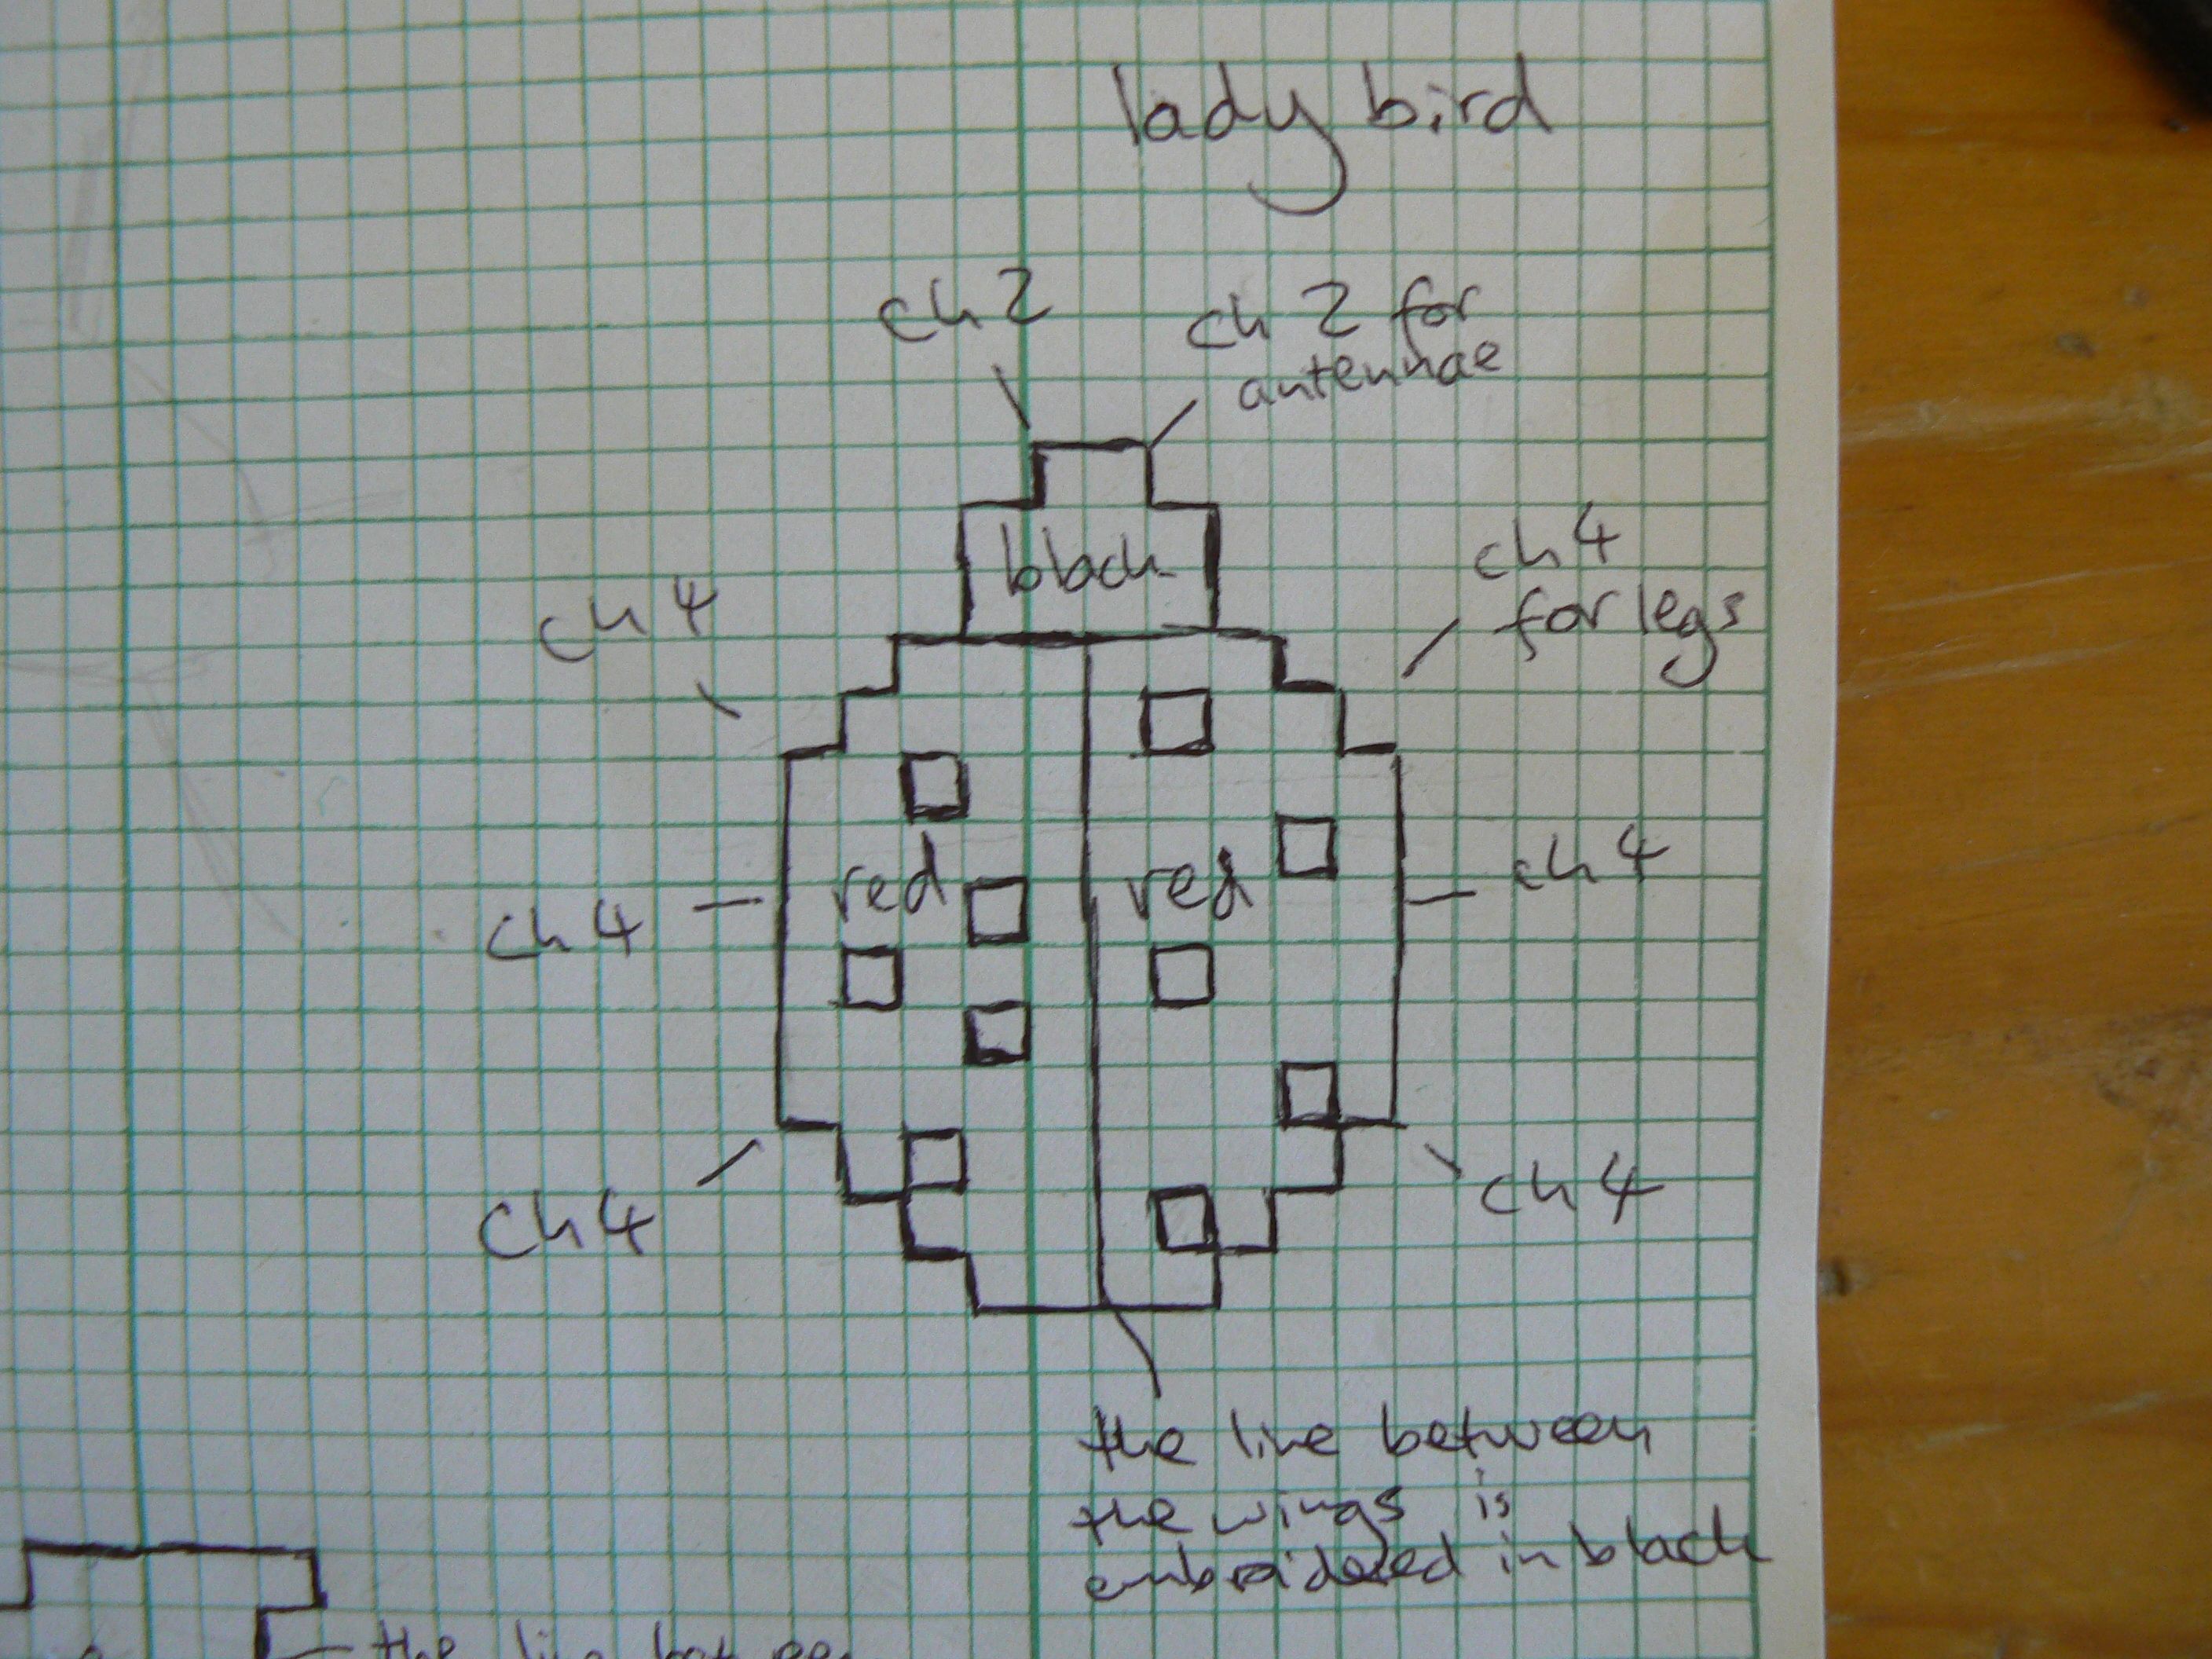 lady bird
ch 2
ch 2 for
antennae
black
ch 4
ch 4
for legs
red
red
ch 4
ch 4
ch 4
ch 4
the line between
the wings is
embroidered in black
the line between